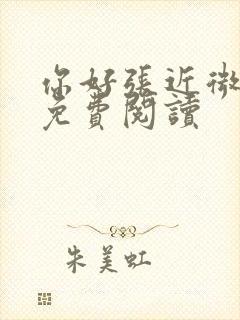 你好張近微
免費閱讀
朱美虹